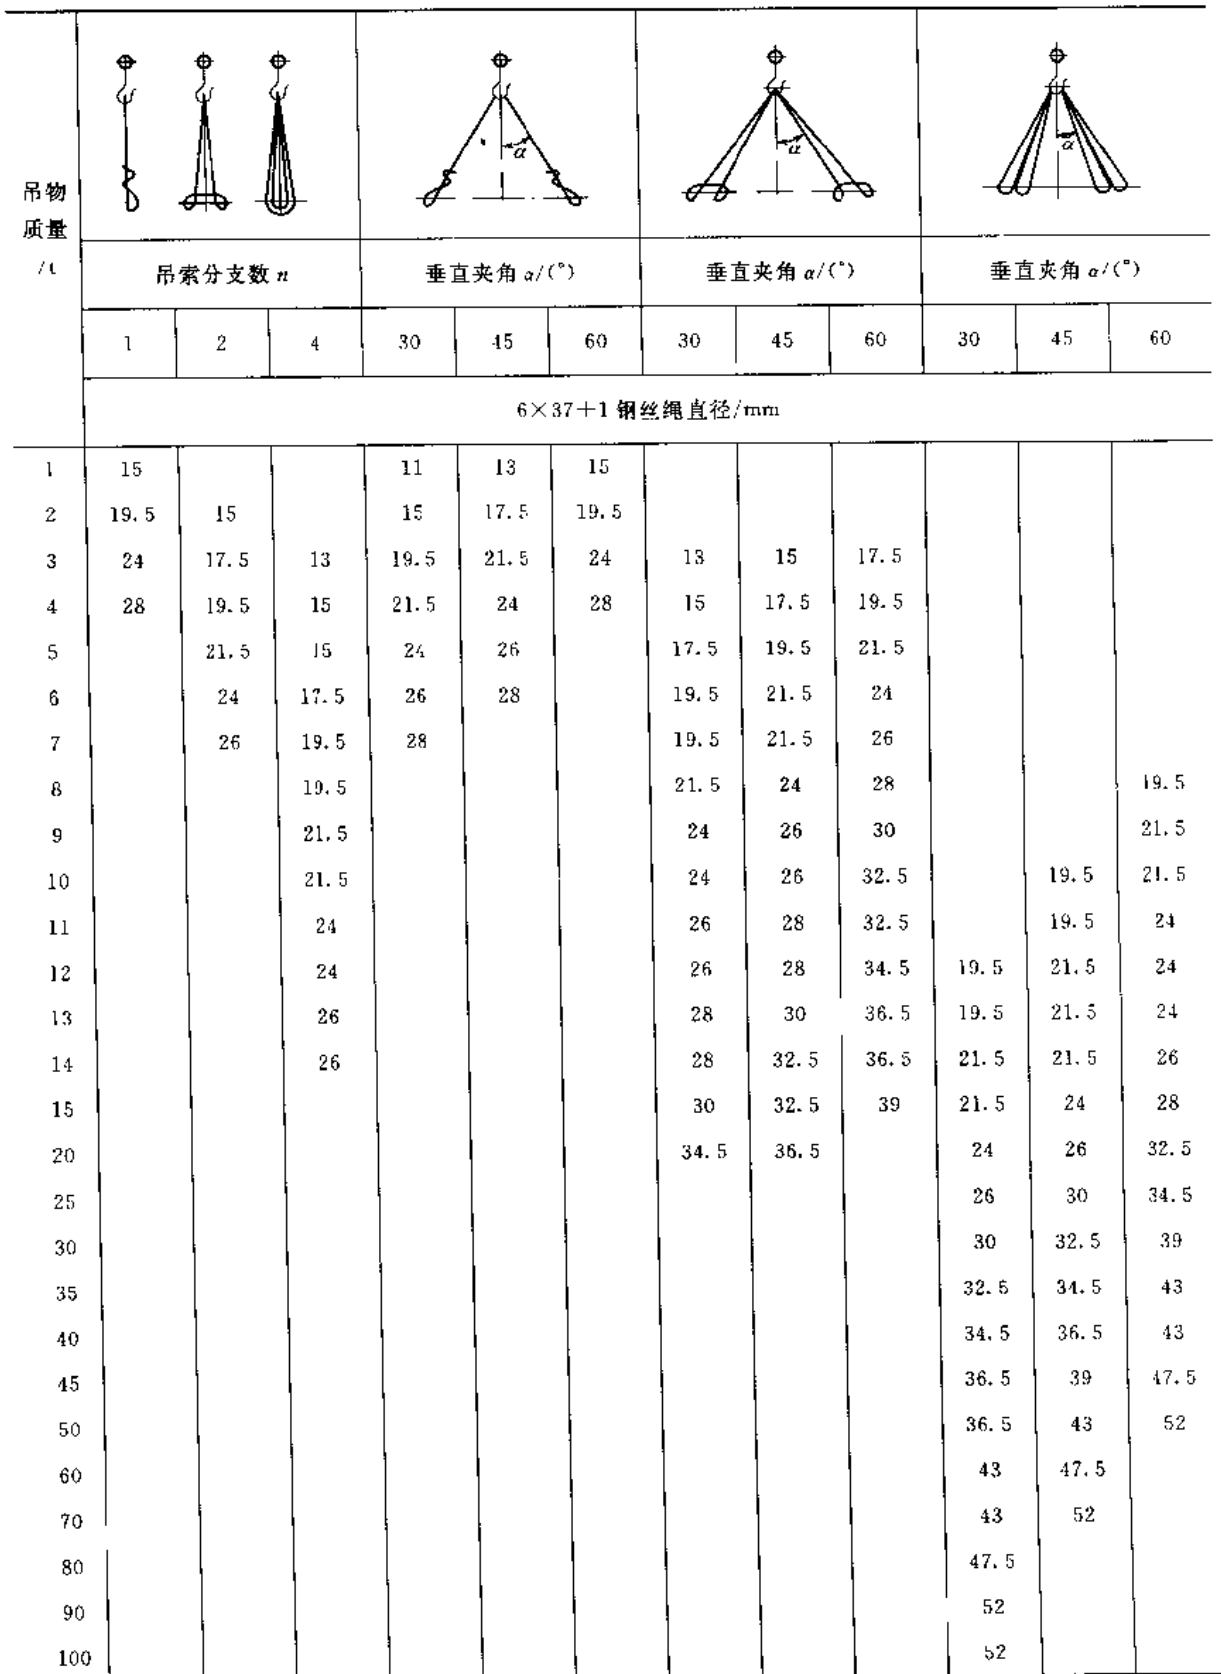 吊物
质量
/t
α
α
α
吊索分支数 n 垂直夹角 α/(°) 垂直夹角 α/(°) 垂直夹角 α/(°)
1 2 4 30 45 60 30 45 60 30 45 60
6×37+1 钢丝绳直径/mm
1 15 11 13 15
2 19.5 15 15 17.5 19.5
3 24 17.5 13 19.5 21.5 24 13 15 17.5
4 28 19.5 15 21.5 24 28 15 17.5 19.5
5 21.5 15 24 26 17.5 19.5 21.5
6 24 17.5 26 28 19.5 21.5 24
7 26 19.5 28 19.5 21.5 26
8 19.5 21.5 24 28 19.5
9 21.5 24 26 30 21.5
10 21.5 24 26 32.5 19.5 21.5
11 24 26 28 32.5 19.5 24
12 24 26 28 34.5 19.5 21.5 24
13 26 28 30 36.5 19.5 21.5 24
14 26 28 32.5 36.5 21.5 21.5 26
15 30 32.5 39 21.5 24 28
20 34.5 36.5 24 26 32.5
25 26 30 34.5
30 30 32.5 39
35 32.5 34.5 43
40 34.5 36.5 43
45 36.5 39 47.5
50 36.5 43 52
60 43 47.5
70 43 52
80 47.5
90 52
100 52